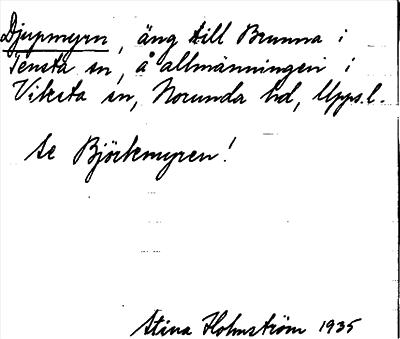 Djupmyrn, äng till Brunna i
Tensta sn, å allmänningen i
Viksta sn, Norunda hd, Upps.l.
Se Björkmyren!
Stina Holmström 1935